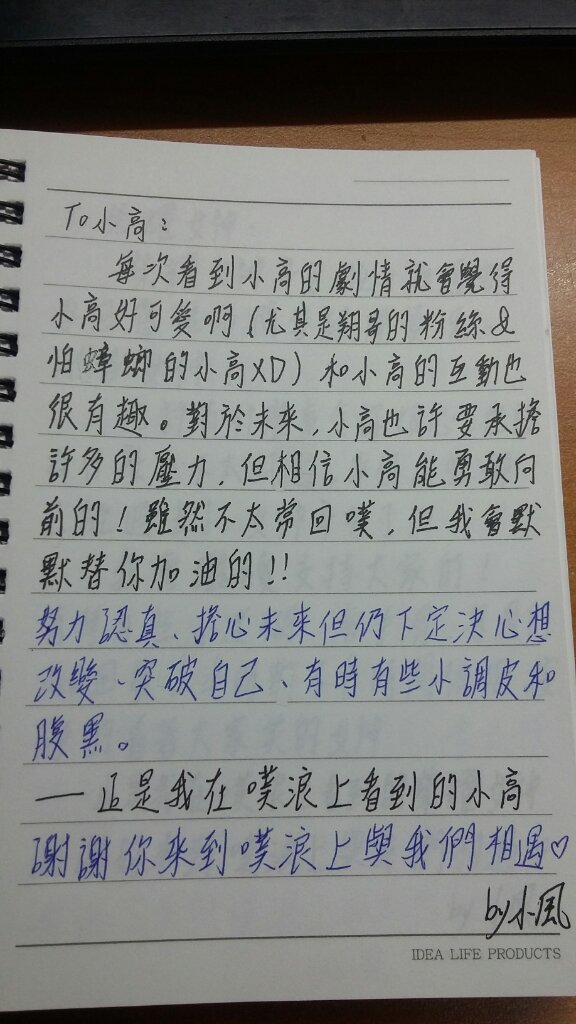 To小高：
每次看到小高的劇情就會覺得
小高好可愛啊(尤其是翔哥的粉絲&
怕蟑螂的小高XD)和小高的互動也
很有趣。對於未來,小高也許要承擔
許多的壓力,但相信小高能勇敢向
前的!雖然不太常回噗,但我會默
默替你加油的!!
努力認真、擔心未來但仍下定決心想
改變、突破自己、有時有些小調皮和
腹黑。
——正是我在噗浪上看到的小高
謝謝你來到噗浪上與我們相遇♡
by小風
IDEA LIFE PRODUCTS